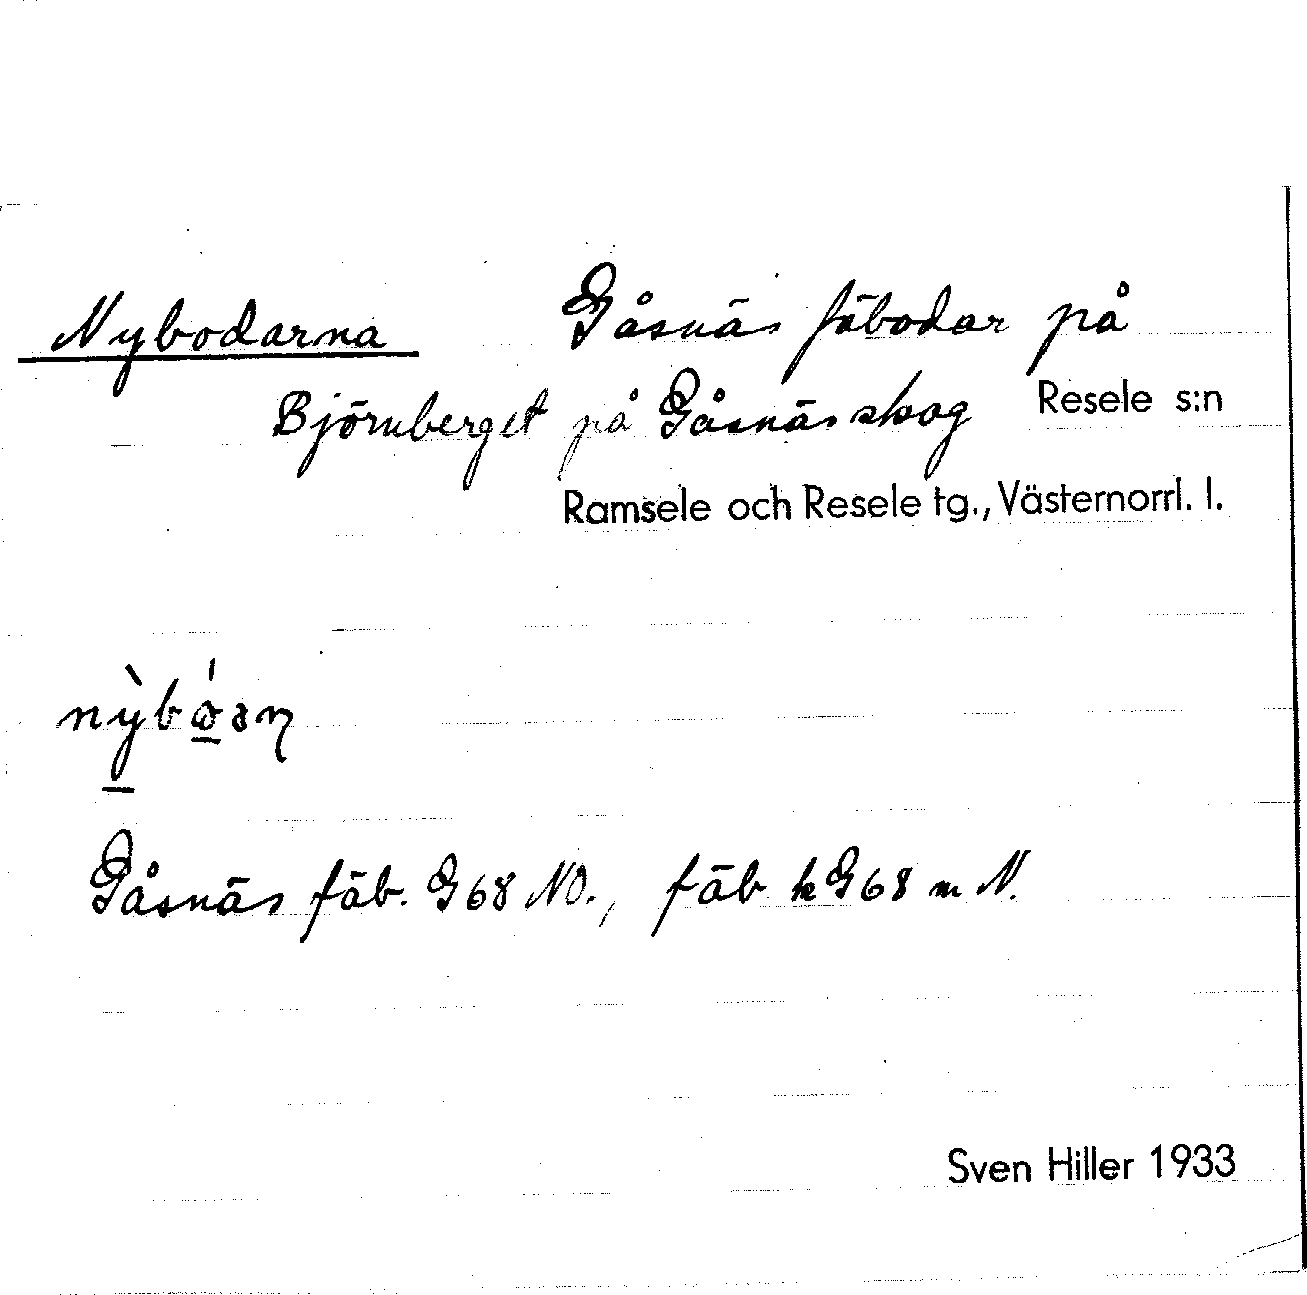 Nybodarna Gåsnäs fäbodar på
Björnberget på Gåsnäs skog Resele s:n
Ramsele och Resele tg., Västernorrl. l.
Gåsnäs fäb. G68 NO., fäb k G68 m N.
Sven Hiller 1933